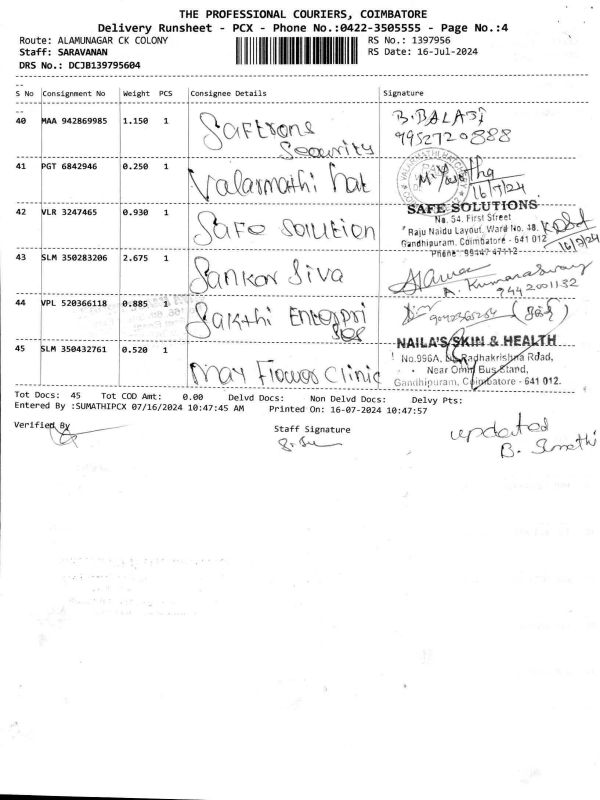 THE PROFESSIONAL COURIERS, COIMBATORE
Delivery Runsheet - PCX - Phone No.:0422-3505555 - Page No.:4
Route: ALAMUNAGAR CK COLONY RS No.: 1397956
Staff: SARAVANAN RS Date: 16-Jul-2024
DRS No.: DCJB139795604
S No Consignment No Weight PCS Consignee Details Signature
40 MAA 942869985 1.150 1 Saftrons Security B.BALAJI
9952720888
41 PGT 6842946 0.250 1 Valarmathi hat
16/7/24
42 VLR 3247465 0.930 1 Safe Solution SAFE SOLUTIONS
No. 54, First Street
Raju Naidu Layout, Ward No. 48,
Gandhipuram, Coimbatore - 641 012
16/7/24
Phone: 99447 47112
43 SLM 350283206 2.675 1 Sankar Siva
A. Kumaraswamy
9442001132
44 VPL 520366118 0.885 1 Sakthi Enterpri
ses
45 SLM 350432761 0.520 1 May Flower Clinic NAILA'S SKIN & HEALTH
No.996A, Radhakrishna Road,
Near Omni Bus Stand,
Gandhipuram, Coimbatore - 641 012.
Tot Docs: 45 Tot COD Amt: 0.00 Delvd Docs: Non Delvd Docs: Delvy Pts:
Entered By :SUMATHIPCX 07/16/2024 10:47:45 AM Printed On: 16-07-2024 10:47:57
Verified By Staff Signature updated
B. Sumathi